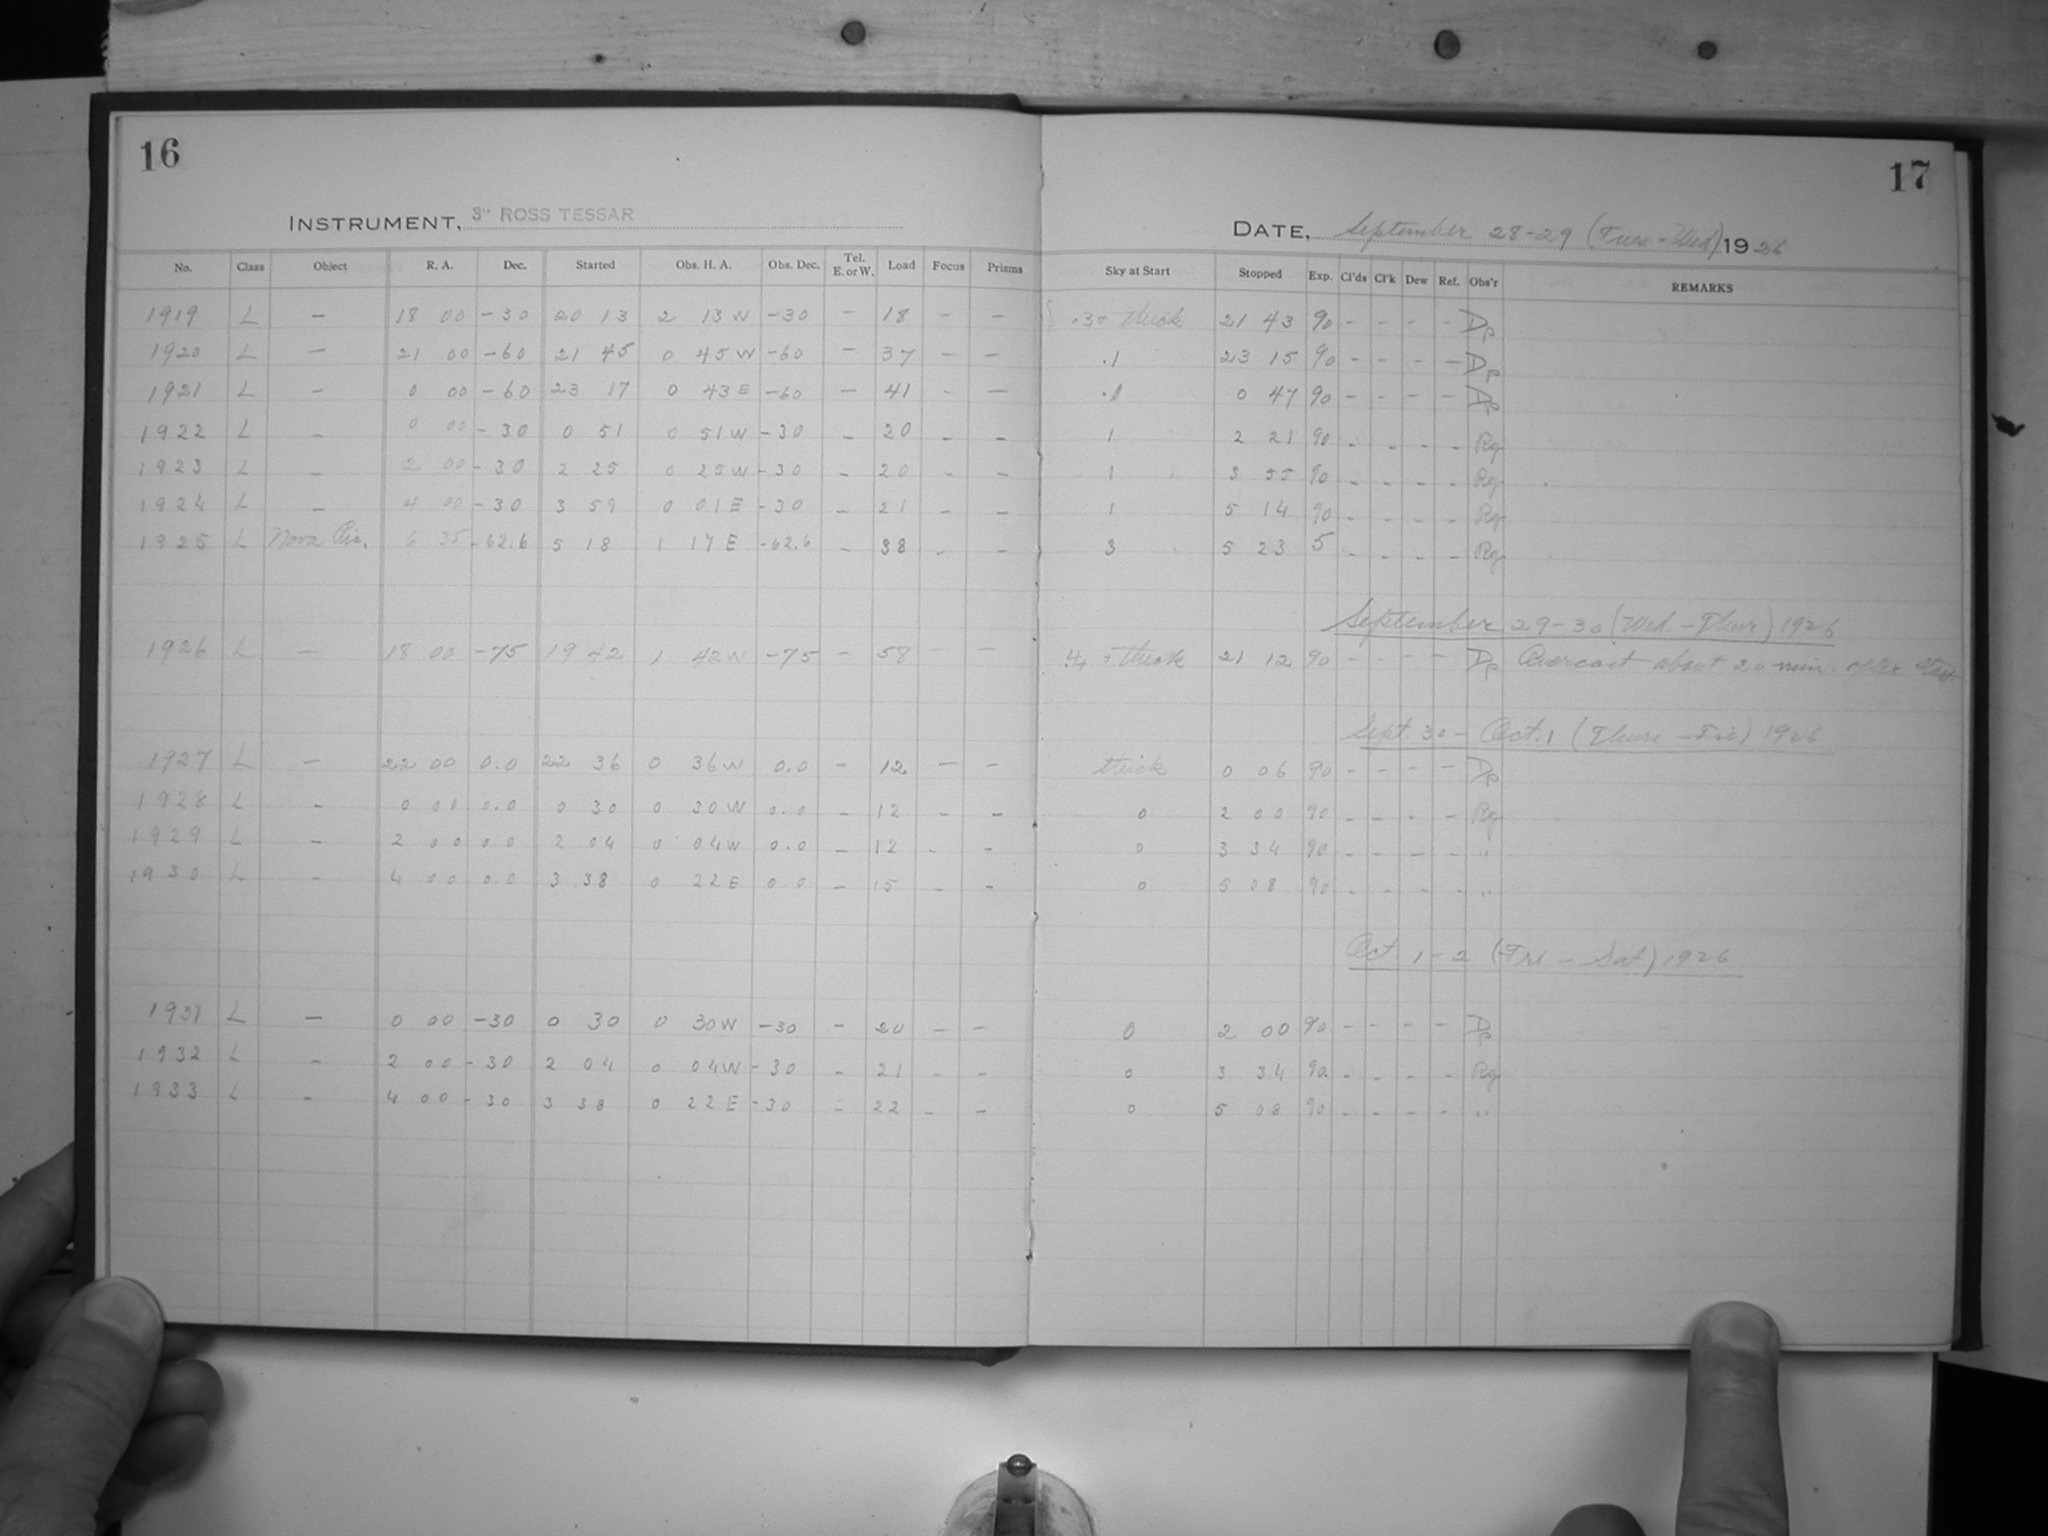 16
INSTRUMENT, 3" ROSS TESSAR
No. Class Object R. A. Dec. Started Obs. H. A. Obs. Dec. Tel. E. or W. Load Focus Prisms
1919 L — 18 00 -30 20 13 2 13 W -30 — 18 — —
1920 L — 21 00 -60 21 45 0 45 W -60 — 37 — —
1921 L — 0 00 -60 23 17 0 43 E -60 — 41 — —
1922 L — 0 00 -30 0 51 0 51 W -30 — 20 — —
1923 L — 2 00 -30 2 25 0 25 W -30 — 20 — —
1924 L — 4 00 -30 3 59 0 01 E -30 — 21 — —
1925 L Nova Pic. 6 35 -62.6 5 18 1 17 E -62.6 — 38 — —
1926 L — 18 00 -75 19 42 1 42 W -75 — 58 — —
1927 L — 22 00 0.0 22 36 0 36 W 0.0 — 12 — —
1928 L — 0 00 0.0 0 30 0 30 W 0.0 — 12 — —
1929 L — 2 00 0.0 2 04 0 04 W 0.0 — 12 — —
1930 L — 4 00 0.0 3 38 0 22 E 0.0 — 15 — —
1931 L — 0 00 -30 0 30 0 30 W -30 — 20 — —
1932 L — 2 00 -30 2 04 0 04 W -30 — 21 — —
1933 L — 4 00 -30 3 38 0 22 E -30 — 22 — —
17
DATE, September 28-29 (Tues-Wed) 1926
Sky at Start Stopped Exp. Cl'ds Cl'k Dew Ref. Obs'r REMARKS
.3+ thick 21 43 90 — — — — Dp
.1 23 15 90 — — — — Dp
.1 0 47 90 — — — — Dp
1 2 21 90 — — — — Rg
1 3 55 90 — — — — Rg
1 5 14 90 — — — — Rg
3 5 23 5 — — — — Rg
September 29-30 (Wed-Thur) 1926
.4 + thick 21 12 90 — — — — Dp Overcast about 20 min. after start.
Sept. 30 - Oct. 1 (Thurs-Fri) 1926
thick 0 06 90 — — — — Dp
0 2 00 90 — — — — Rg
0 3 34 90 — — — — "
0 5 08 90 — — — — "
Oct. 1-2 (Fri-Sat) 1926
0 2 00 90 — — — — Dp
0 3 34 90 — — — — Rg
0 5 08 90 — — — — "